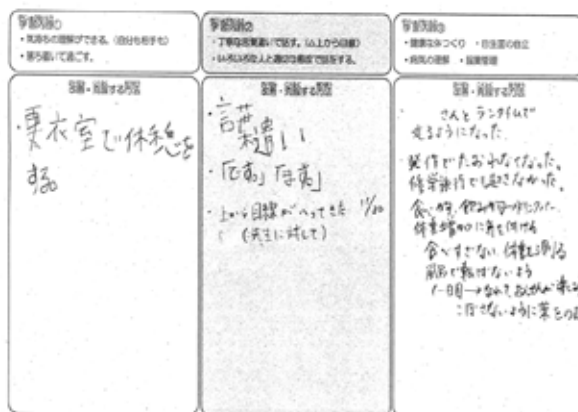 学習課題①
・気持ちの理解ができる。(自分も相手も)
・落ち着いて過ごす。
・更衣室で休憩を
する。
学習課題②
・丁寧な言葉遣いで話す。(△上から目線)
・いろいろな人と適切な態度で話をする。
・言葉遣い
・「です。」「ます。」
・上から目線がへってきた 11/20
(先生に対して)
学習課題③
・健康な体つくり ・日生面の自立
・病気の理解 ・服薬管理
さんとランタイムで
走るようになった。
・発作でたおれなくなった。
修学旅行でも起きなかった。
体重増加に気を付ける
食べすぎない 体重を測る
風呂で転ばないよう
こぼさないように薬をのむ